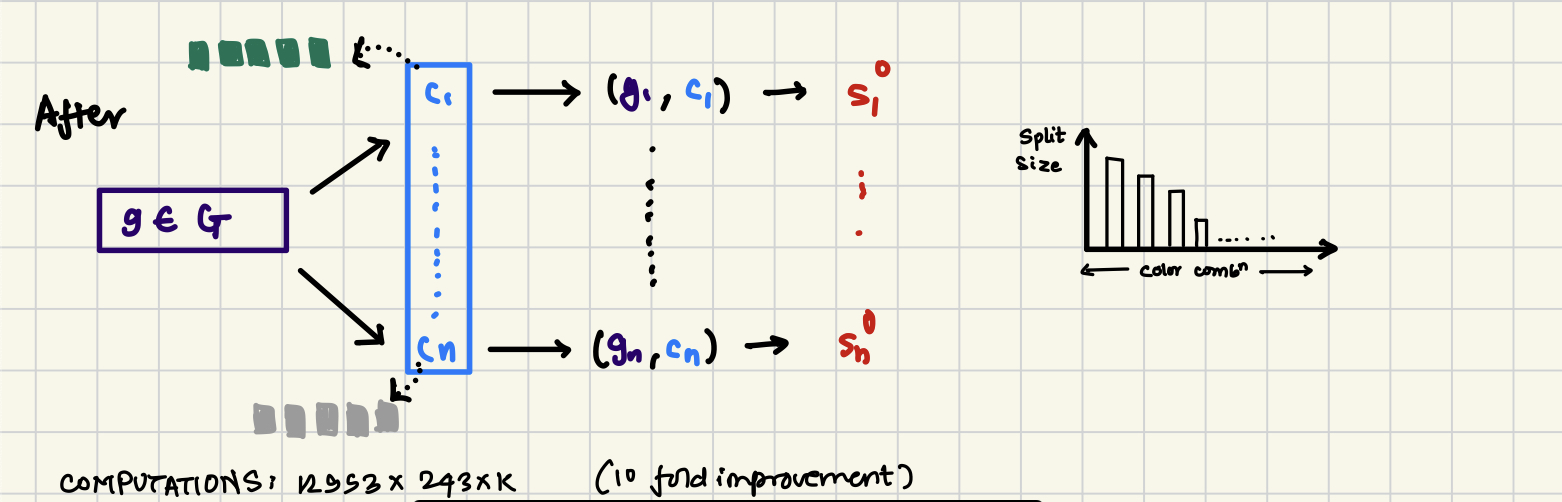 After
g ∈ G
c₁
(g₁, c₁)
s₁⁰
cn
(gn, cn)
sn⁰
Split
size
color combⁿ
COMPUTATIONS: 12953 x 243 x K (10 fold improvement)